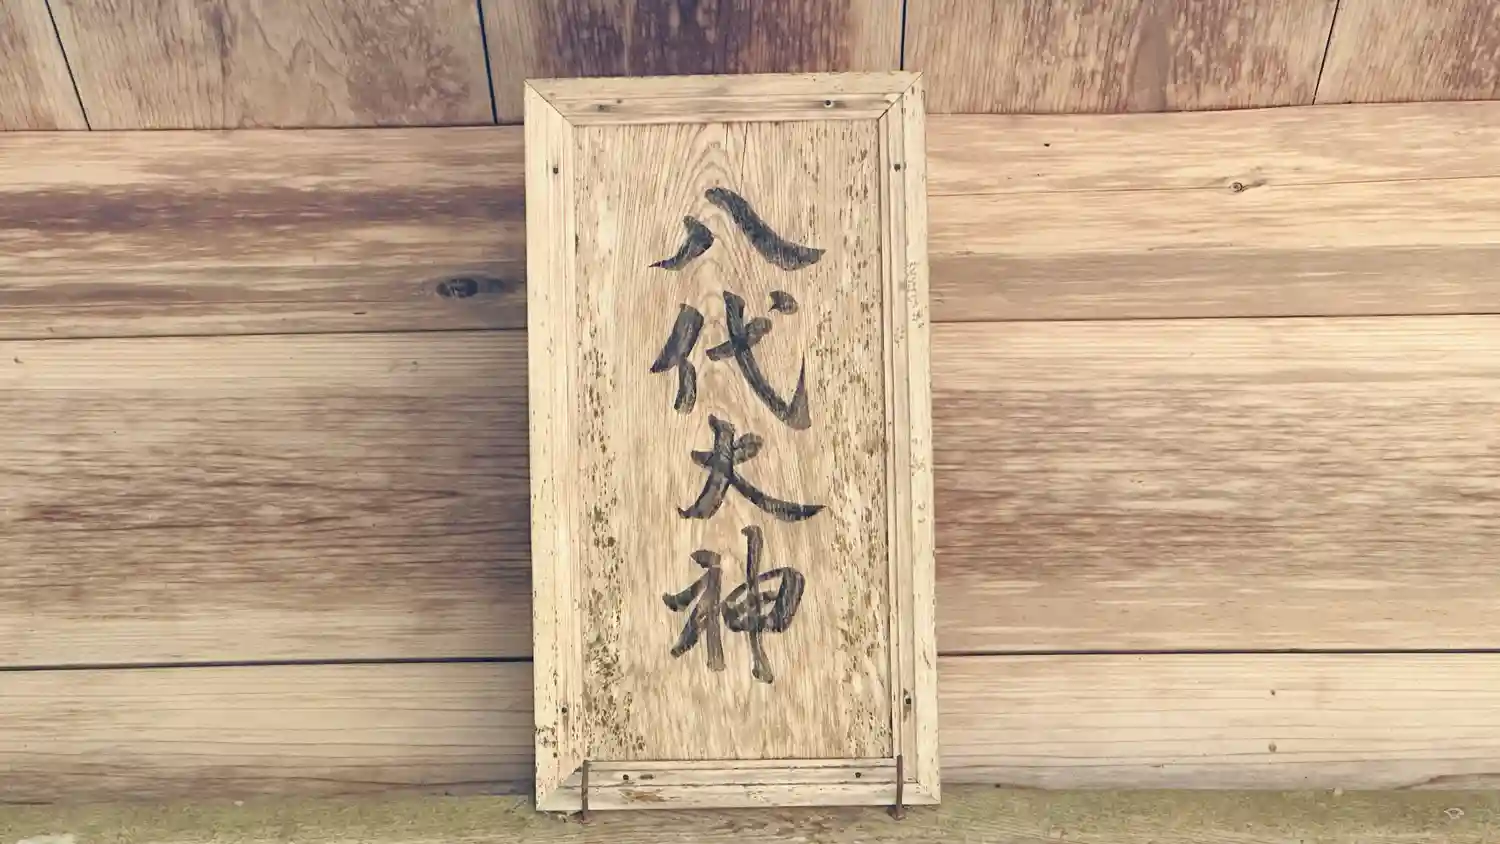 八代大神